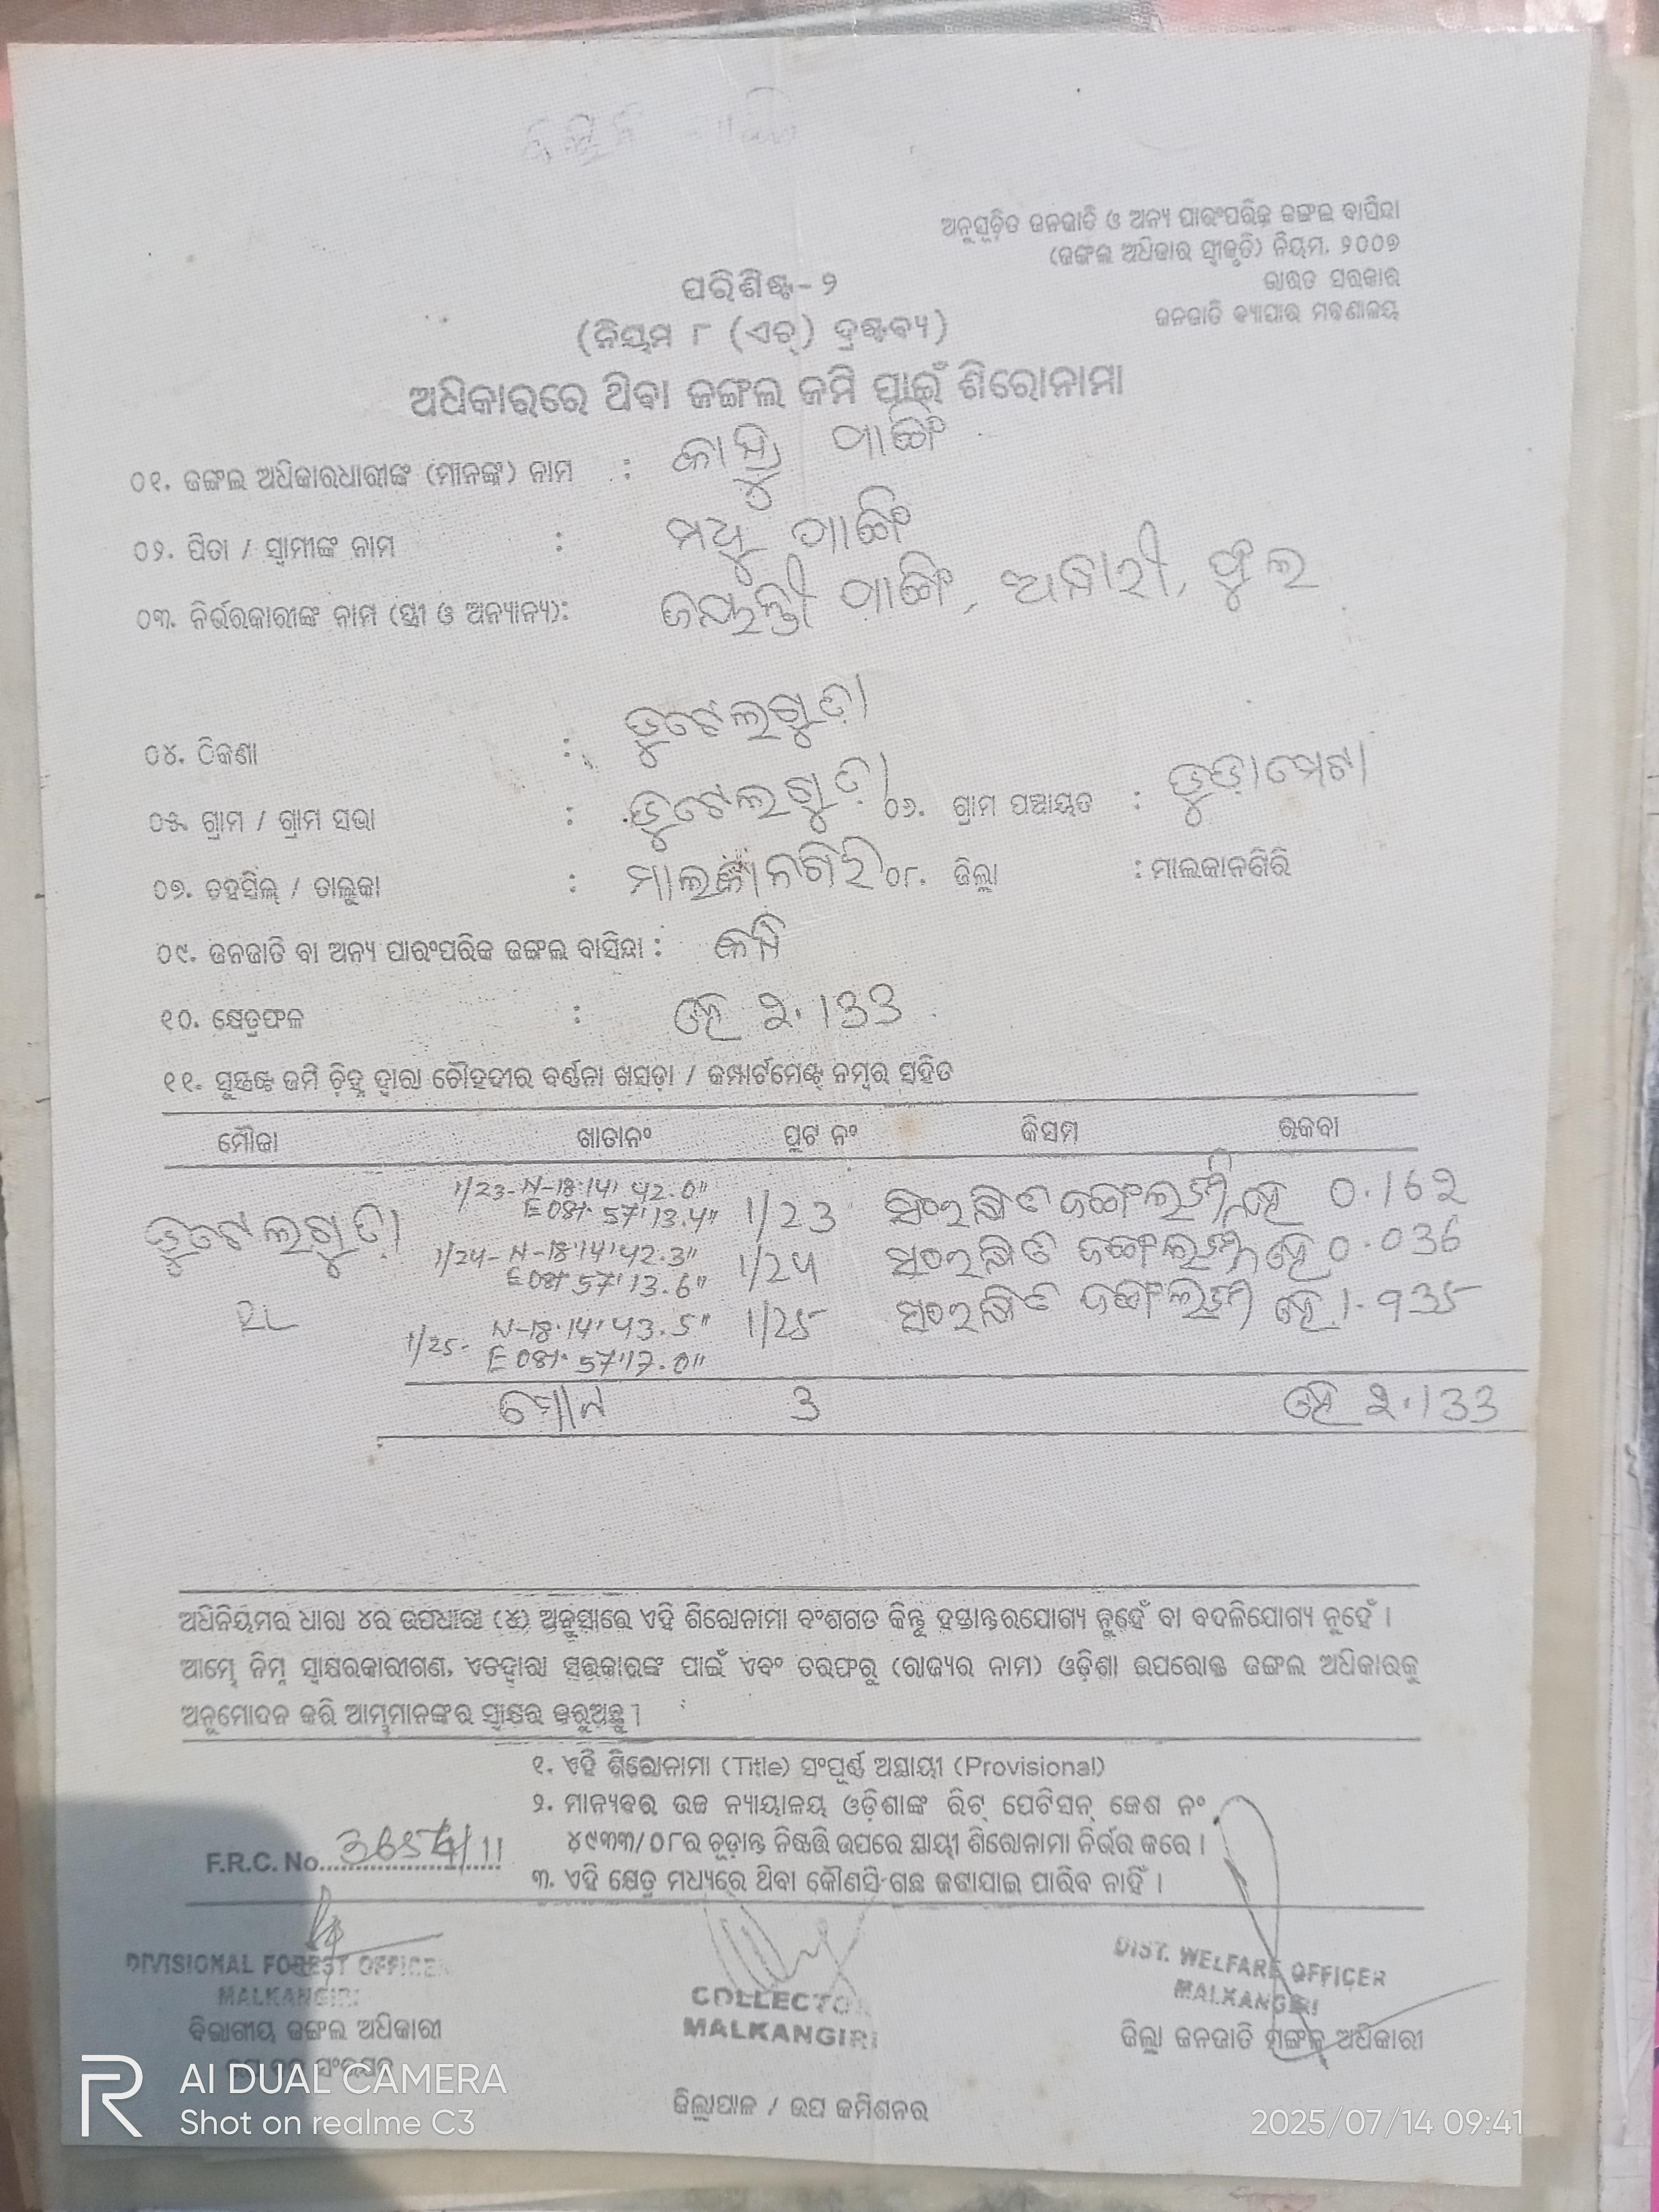 ଅନୁସୂଚିତ ଜନଜାତି ଓ ଅନ୍ୟ ପାରଂପରିକ ଜଙ୍ଗଲ ବାସିନ୍ଦା
(ଜଙ୍ଗଲ ଅଧିକାର ସ୍ୱୀକୃତି) ନିୟମ, ୨୦୦୭
ଭାରତ ସରକାର
ଜନଜାତି ବ୍ୟାପାର ମନ୍ତ୍ରଣାଳୟ
ପରିଶିଷ୍ଟ- ୨
(ନିୟମ ୮ (ଏଚ୍) ଦ୍ରଷ୍ଟବ୍ୟ)
ଅଧିକାରରେ ଥିବା ଜଙ୍ଗଲ ଜମି ପାଇଁ ଶିରୋନାମା
୦୧. ଜଙ୍ଗଲ ଅଧିକାରଧାରୀଙ୍କ (ମାନଙ୍କ) ନାମ :
୦୨. ପିତା / ସ୍ୱାମୀଙ୍କ ନାମ : ମଧୁ
୦୩. ନିର୍ଭରକାରୀଙ୍କ ନାମ (ସ୍ତ୍ରୀ ଓ ଅନ୍ୟାନ୍ୟ): ଜୟନ୍ତୀ
୦୪. ଠିକଣା : ଡୁଟେଲଗୁଡ଼ା
୦୫. ଗ୍ରାମ / ଗ୍ରାମ ସଭା : ଡୁଟେଲଗୁଡ଼ା ୦୬. ଗ୍ରାମ ପଞ୍ଚାୟତ : ତୁଡ଼ାମେଟା
୦୭. ତହସିଲ୍ / ତାଲୁକା : ମାଲକାନଗିରି ୦୮. ଜିଲ୍ଲା : ମାଲକାନଗିରି
୦୯. ଜନଜାତି ବା ଅନ୍ୟ ପାରଂପରିକ ଜଙ୍ଗଲ ବାସିନ୍ଦା :
୧୦. କ୍ଷେତ୍ରଫଳ : ହେ ୨.133
୧୧. ସୁସ୍ପଷ୍ଟ ଜମି ଚିହ୍ନ ଦ୍ୱାରା ଚୌହଦୀର ବର୍ଣ୍ଣନା ଖସଡ଼ା / କମ୍ପାର୍ଟମେଣ୍ଟ୍ ନମ୍ବର ସହିତ
ମୌଜା ଖାତାନଂ ପ୍ଲଟ ନଂ କିସମ ରକବା
1/23- N-18·14' 42.0"
E 081· 57'13.4" 1/23 ସଂରକ୍ଷିତ ହେ 0.162
ଡୁଟେଲଗୁଡ଼ା 1/24- N-18·14'42.3"
E 081· 57'13.6" 1/24 ସଂରକ୍ଷିତ ହେ 0.036
1/25- N-18·14'43.5" 1/25 ସଂରକ୍ଷିତ ହେ 1.935
E 081· 57'17.0"
ମୋଟ 3 ହେ ୨.133
ଅଧିନିୟମର ଧାରା ୪ର ଉପଧାରା (୪) ଅନୁସାରେ ଏହି ଶିରୋନାମା ବଂଶଗତ କିନ୍ତୁ ହସ୍ତାନ୍ତରଯୋଗ୍ୟ ନୁହେଁ ବା ବଦଳିଯୋଗ୍ୟ ନୁହେଁ ।
ଆମ୍ଭେ ନିମ୍ନ ସ୍ୱାକ୍ଷରକାରୀଗଣ, ଏତଦ୍ୱାରା ସରକାରଙ୍କ ପାଇଁ ଏବଂ ତରଫରୁ (ରାଜ୍ୟର ନାମ) ଓଡ଼ିଶା ଉପରୋକ୍ତ ଜଙ୍ଗଲ ଅଧିକାରକୁ
ଅନୁମୋଦନ କରି ଆମ୍ଭମାନଙ୍କର ସ୍ୱାକ୍ଷର କରୁଅଛୁ ।
୧. ଏହି ଶିରୋନାମା (Title) ସଂପୂର୍ଣ୍ଣ ଅସ୍ଥାୟୀ (Provisional)
୨. ମାନ୍ୟବର ଉଚ୍ଚ ନ୍ୟାୟାଳୟ ଓଡ଼ିଶାଙ୍କ ରିଟ୍ ପେଟିସନ୍ କେଶ ନଂ
୪୯୩୩/୦୮ର ଚୂଡ଼ାନ୍ତ ନିଷ୍ପତ୍ତି ଉପରେ ସ୍ଥାୟୀ ଶିରୋନାମା ନିର୍ଭର କରେ ।
F.R.C. No.
୩. ଏହି କ୍ଷେତ୍ର ମଧ୍ୟରେ ଥିବା କୌଣସି ଗଛ କଟାଯାଇ ପାରିବ ନାହିଁ ।
DIVISIONAL FOREST OFFICER
MALKANGIRI
ବିଭାଗୀୟ ଜଙ୍ଗଲ ଅଧିକାରୀ
COLLECTOR
MALKANGIRI
ଜିଲ୍ଲାପାଳ / ଉପ କମିଶନର
DIST. WELFARE OFFICER
MALKANGIRI
ଜିଲ୍ଲା ଜନଜାତି ମଙ୍ଗଳ ଅଧିକାରୀ
AI DUAL CAMERA
Shot on realme C3
2025/07/14 09:41